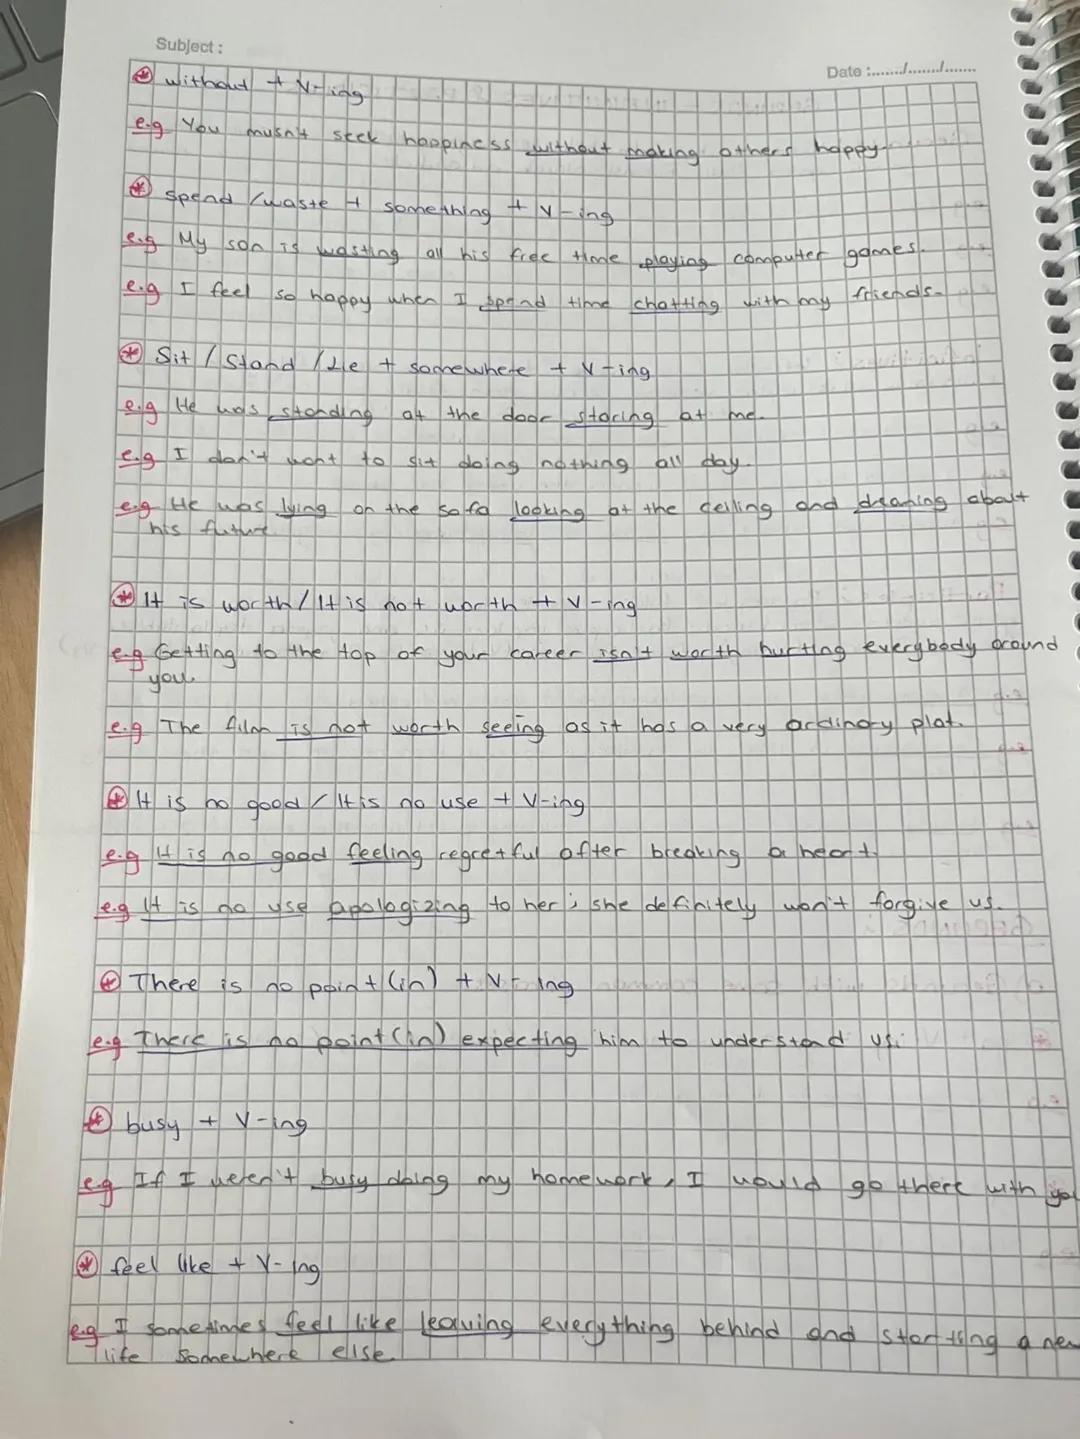 Subject :
Date :......../......../........
⊛ without + V-ing
e.g You musn't seek happiness without making others happy.
⊛ spend /waste + something + V-ing
e.g My son is wasting all his free time playing computer games.
e.g I feel so happy when I spend time chatting with my friends.
⊛ Sit / Stand / Lie + somewhere + V-ing
e.g He was standing at the door staring at me.
e.g I don't want to sit doing nothing all day.
e.g He was lying on the sofa looking at the ceiling and dreaming about
his future.
⊛ It is worth / It is not worth + V-ing
e.g Getting to the top of your career isn't worth hurting everybody around
you.
e.g The film is not worth seeing as it has a very ordinary plot.
⊛ It is no good / It is no use + V-ing
e.g It is no good feeling regretful after breaking a heart.
e.g It is no use apologizing to her; she definitely won't forgive us.
⊛ There is no point (in) + V-ing
e.g There is no point (in) expecting him to understand us.
⊛ busy + V-ing
e.g If I weren't busy doing my homework, I would go there with you
⊛ feel like + V-ing
e.g I sometimes feel like leaving everything behind and starting a new
life somewhere else.